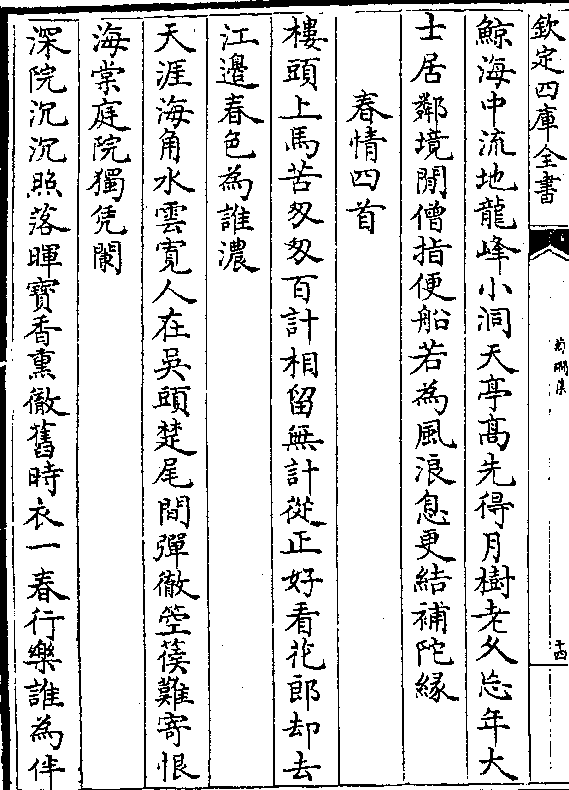 欽定四庫全書
菊磵集
十四
鯨海中流地龍峰小洞天亭高先得月樹老久忘年大
士居鄰境閒僧指便船若為風浪息更結補陀緣
春情四首
樓頭上馬苦匆匆百計相留無計從正好看花郎却去
江邊春色為誰濃
天涯海角水雲寛人在吳頭楚尾間彈徹箜篌難寄恨
海棠庭院獨凭闌
深院沉沉照落暉寶香熏徹舊時衣一春行樂誰為伴